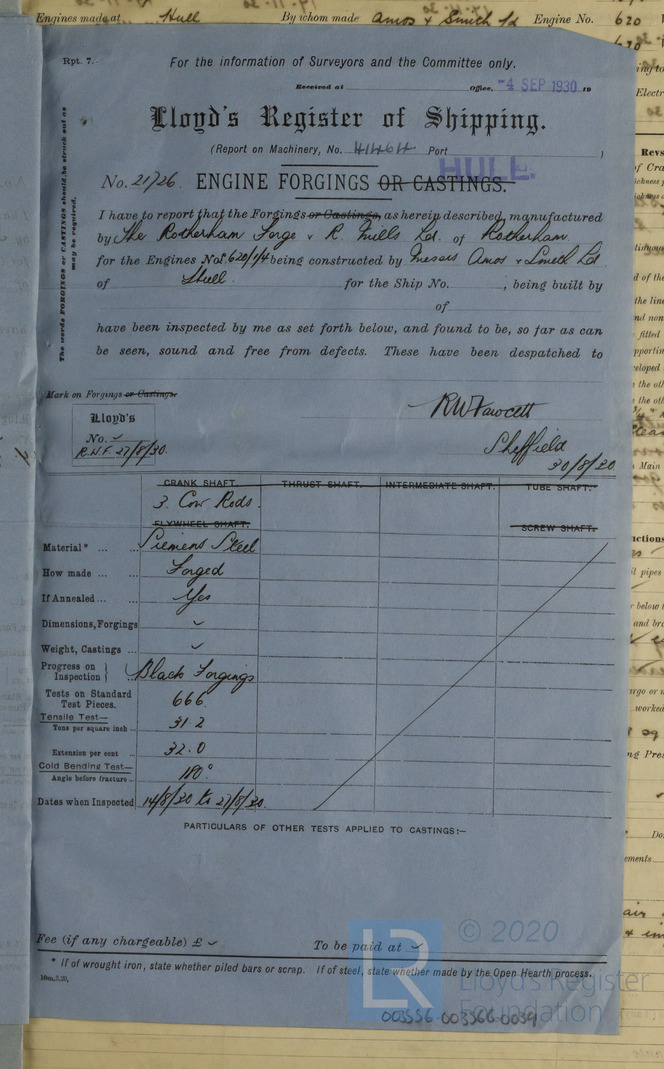 Engines made at Hull By whom made Amos & Smith Ld Engine No. 620
Rpt. 7.
For the information of Surveyors and the Committee only.
Received at Office, -4 SEP 1930 19
Lloyd's Register of Shipping.
(Report on Machinery, No. 41464 Port HULL. )
No. 21726. ENGINE FORGINGS OR CASTINGS.
The words FORGINGS or CASTINGS should be struck out as
may be required.
I have to report that the Forgings or Castings, as herein described, manufactured
by The Rotherham Forge & R. Mills Ld. of Rotherham
for the Engines Nos. 620/1/4 being constructed by Messrs Amos & Smith Ld
of Hull for the Ship No. , being built by
of
have been inspected by me as set forth below, and found to be, so far as can
be seen, sound and free from defects. These have been despatched to
Mark on Forgings or Castings.
Lloyd's
No.
R.W.F. 27/8/30.
RWFawcett
Sheffield
30/8/30.
CRANK SHAFT. THRUST SHAFT. INTERMEDIATE SHAFT. TUBE SHAFT.
3. Con Rods.
FLYWHEEL SHAFT. SCREW SHAFT.
Material* ... ... Siemens Steel
How made ... ... Forged
If Annealed ... ... Yes
Dimensions, Forgings ✓
Weight, Castings ... ✓
Progress on Inspection } ... Black Forgings
Tests on Standard Test Pieces. 666.
Tensile Test—
Tons per square inch ... 31.2
Extension per cent ... 32.0
Cold Bending Test—
Angle before fracture ... 180°
Dates when Inspected 14/8/30 to 27/8/30.
PARTICULARS OF OTHER TESTS APPLIED TO CASTINGS:—
Fee (if any chargeable) £ ✓ To be paid at ✓
* If of wrought iron, state whether piled bars or scrap. If of steel, state whether made by the Open Hearth process.
10m,3,20.
LR
© 2020
Lloyd's Register
Foundation
003556-003566-0039